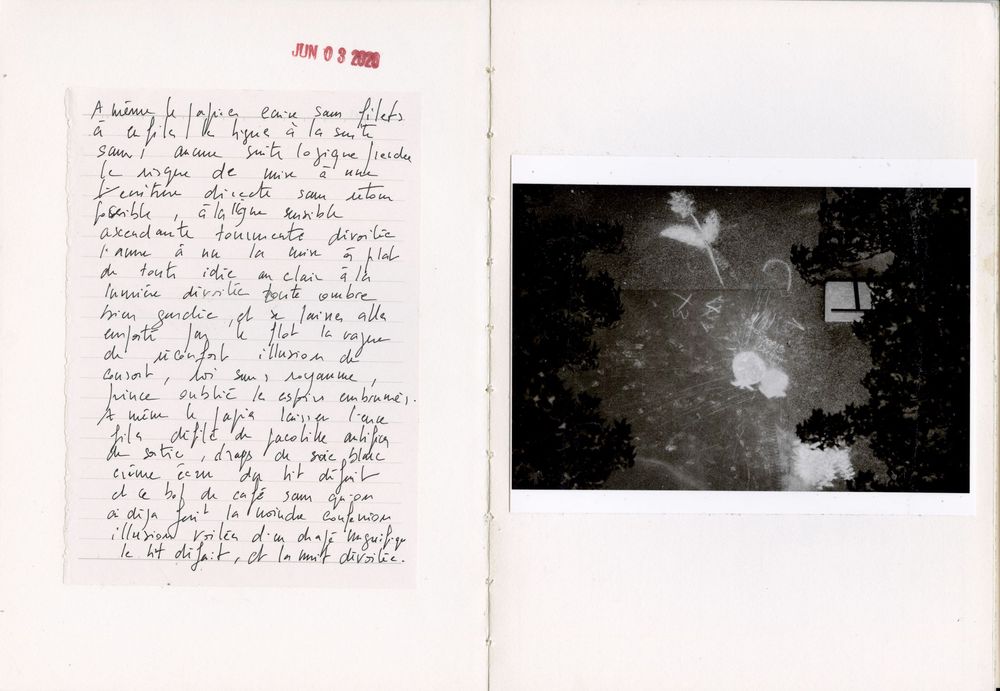 JUN 03 2020
A même le papier écrire sans filets
à en filer la ligne à la suite
sans aucune suite logique prendre
le risque de mise à nue
l'écriture directe sans retour
possible, à la ligne sensible
ascendante tourmente dévoilée
l'âme à nu la mise à plat
de toute idée au clair à la
lumière dévoilée toute ombre
bien gardée, et se laisser aller
emporté par le flot la vague
de réconfort illusion de
, roi sans royaume,
prince oublié les esprits embrumés.
A même le papier laisser l'encre
filer défilé de pacotille
de sortie, draps de soie blanc
crème écru du lit défait
et ce bol de café sans qu'on
ai déjà fait la moindre confusion
illusion voilée d'un drapé magnifique
le lit défait, et la nuit dévoilée.